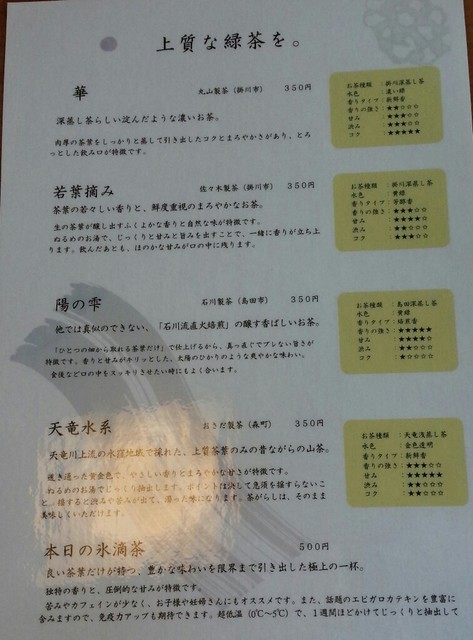 上質な緑茶を。
華 丸山製茶（掛川市） ３５０円
深蒸し茶らしい淀んだような濃いお茶。
肉厚の茶葉をしっかりと蒸して引き出したコクとまろやかさがあり、とろ
っとした飲み口が特徴です。
お茶種類 ：掛川深蒸し茶
水色 ：濃い緑
香りタイプ：新鮮香
香りの強さ：★★☆☆☆
甘み ：★★★☆☆
渋み ：★★★☆☆
コク ：★★★★★
若葉摘み 佐々木製茶（掛川市） ３５０円
茶葉の若々しい香りと、鮮度重視のまろやかなお茶。
生の茶葉が醸し出すふくよかな香りと自然な味が特徴です。
ぬるめのお湯で、じっくりと甘みと旨みを出すことで、一緒に香りが立ち上
ります。飲んだあとも、ほのかな甘みが口の中に残ります。
お茶種類 ：掛川深蒸し茶
水色 ：黄緑
香りタイプ：芳醇香
香りの強さ：★★★☆☆
甘み ：★★★★☆
渋み ：★★☆☆☆
コク ：★★★☆☆
陽の雫 石川製茶（島田市） ３５０円
他では真似のできない、「石川流直火焙煎」の醸す香ばしいお茶。
「ひとつの畑から取れる茶葉だけ」で仕上げるから、真っ直ぐでブレない旨さが
特徴です。香りと甘みがキリッとした、太陽のひかりのような爽やかな味わい。
食後など口の中をスッキリさせたい時にもよく合います。
お茶種類 ：島田深蒸し茶
水色 ：黄緑
香りタイプ：焙煎香
香りの強さ：★★★★★
甘み ：★★★★☆
渋み ：★★☆☆☆
コク ：★☆☆☆☆
天竜水系 おさだ製茶（森町） ３５０円
天竜川上流の水窪地域で採れた、上質茶葉のみの昔ながらの山茶。
透き通った黄金色で、やさしい香りとまろやかな甘さが特徴です。
ぬるめのお湯でじっくり抽出します。ポイントは決して急須を揺すらないこ
と。揺すると渋みや苦みが出て、濁った味になります。茶がらしは、そのまま
美味しくいただけます。
お茶種類 ：天竜浅蒸し茶
水色 ：金色透明
香りタイプ：新鮮香
香りの強さ：★★★☆☆
甘み ：★★★★★
渋み ：★★☆☆☆
コク ：★★☆☆☆
本日の氷滴茶 ５００円
良い茶葉だけが持つ、豊かな味わいを限界まで引き出した極上の一杯。
独特の香りと、圧倒的な甘みが特徴です。
苦みやカフェインが少なく、お子様や妊婦さんにもオススメです。また、話題のエピガロカテキンを豊富に
含みますので、免疫力アップも期待できます。超低温（0℃～5℃）で、１週間ほどかけてじっくりと抽出して